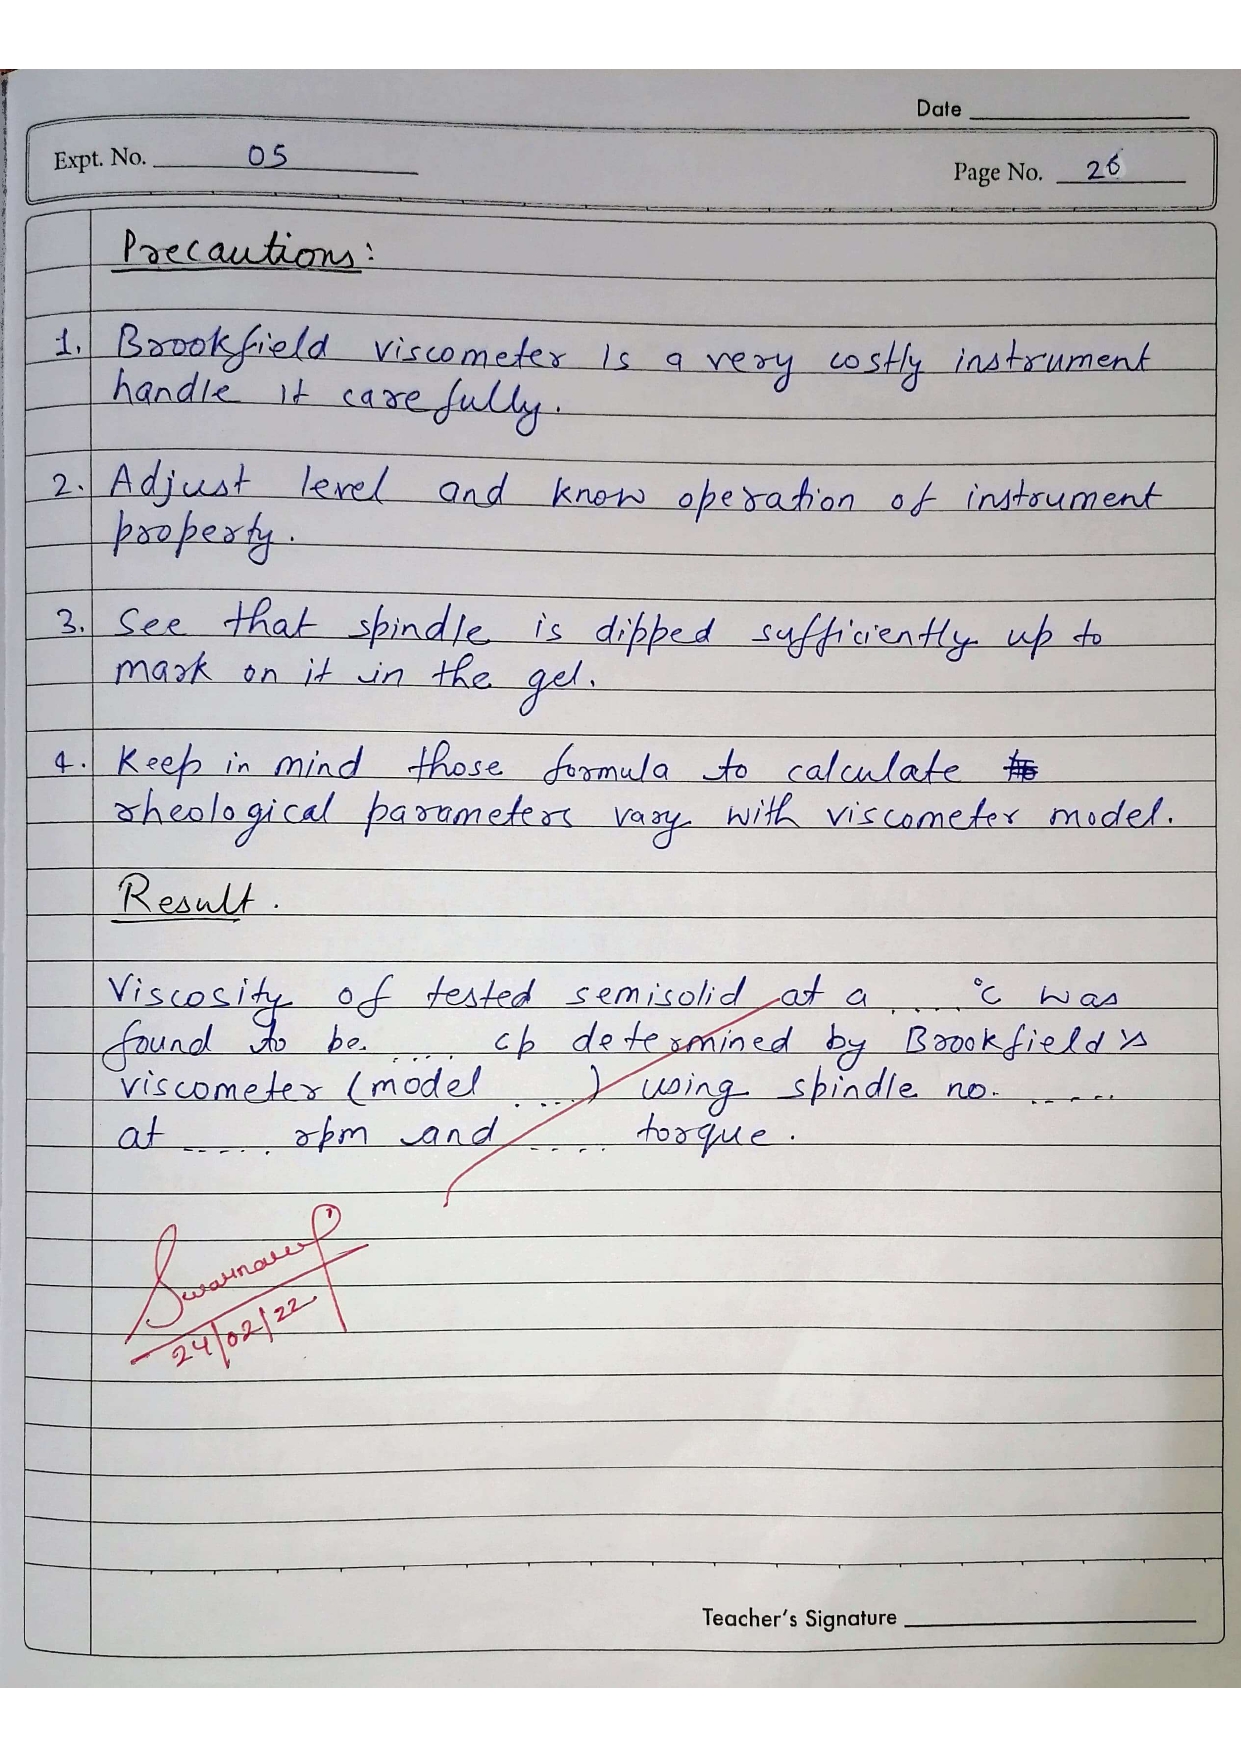 Date
Expt. No. 05
Page No. 26
Precautions:
1. Brookfield viscometer is a very costly instrument
handle it carefully.
2. Adjust level and know operation of instrument
property.
3. See that spindle is dipped sufficiently up to
mark on it in the gel.
4. Keep in mind those formula to calculate
rheological parameters vary with viscometer model.
Result.
Viscosity of tested semisolid at a ..... °C was
found to be .... cp determined by Brookfield's
viscometer (model .....) using spindle no. .....
at ..... rpm and ..... torque.
24/02/22
Teacher's Signature